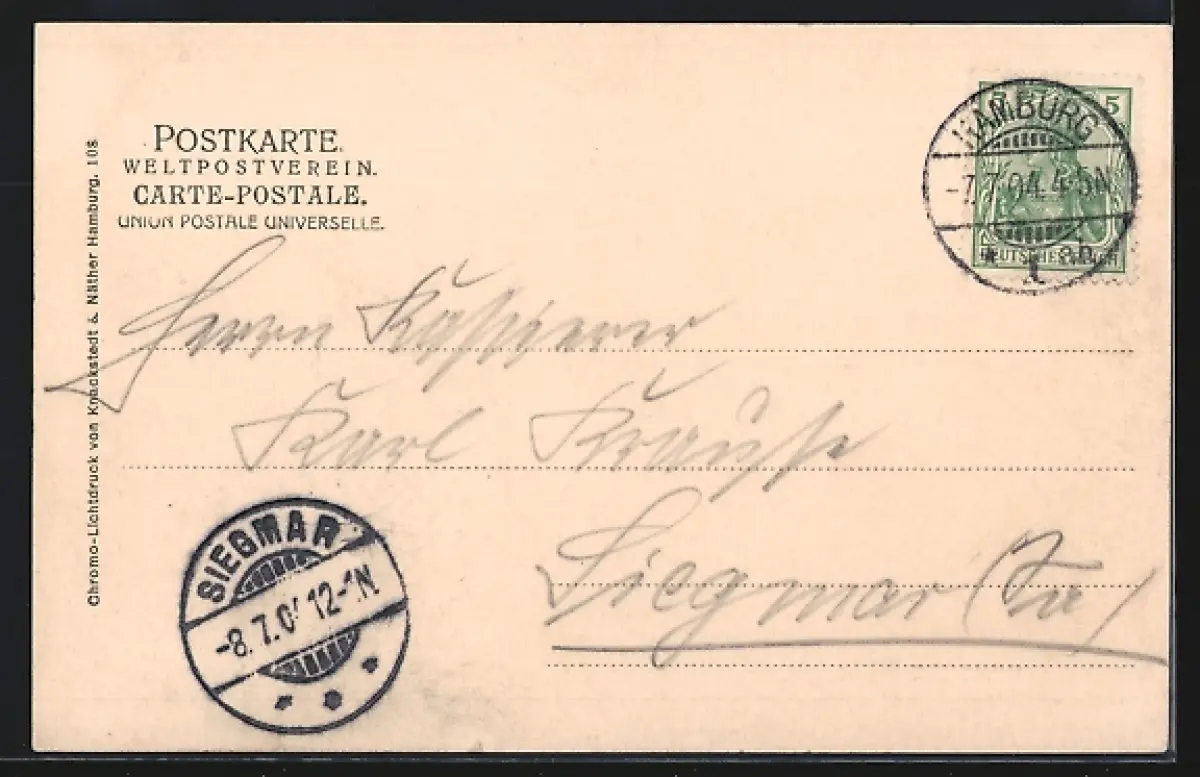 POSTKARTE.
WELTPOSTVEREIN.
CARTE-POSTALE.
UNION POSTALE UNIVERSELLE.
Chromo-Lichtdruck von Knackstedt & Näther Hamburg. 108
5 5
DEUTSCHES REICH
HAMBURG
-7.7.04.4-5N
* 1 ab
Herrn Kassierer
Karl Krauße
Siegmar (Sa)
SIEGMAR
-8.7.0 12-1N
* * *